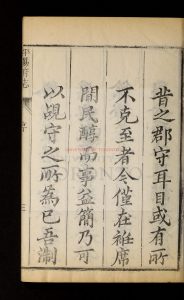 昔之郡守耳目或有所
不克至者今僅在袵席
間民醇而事益簡乃可
以覘守之所為已吾淛
序
三